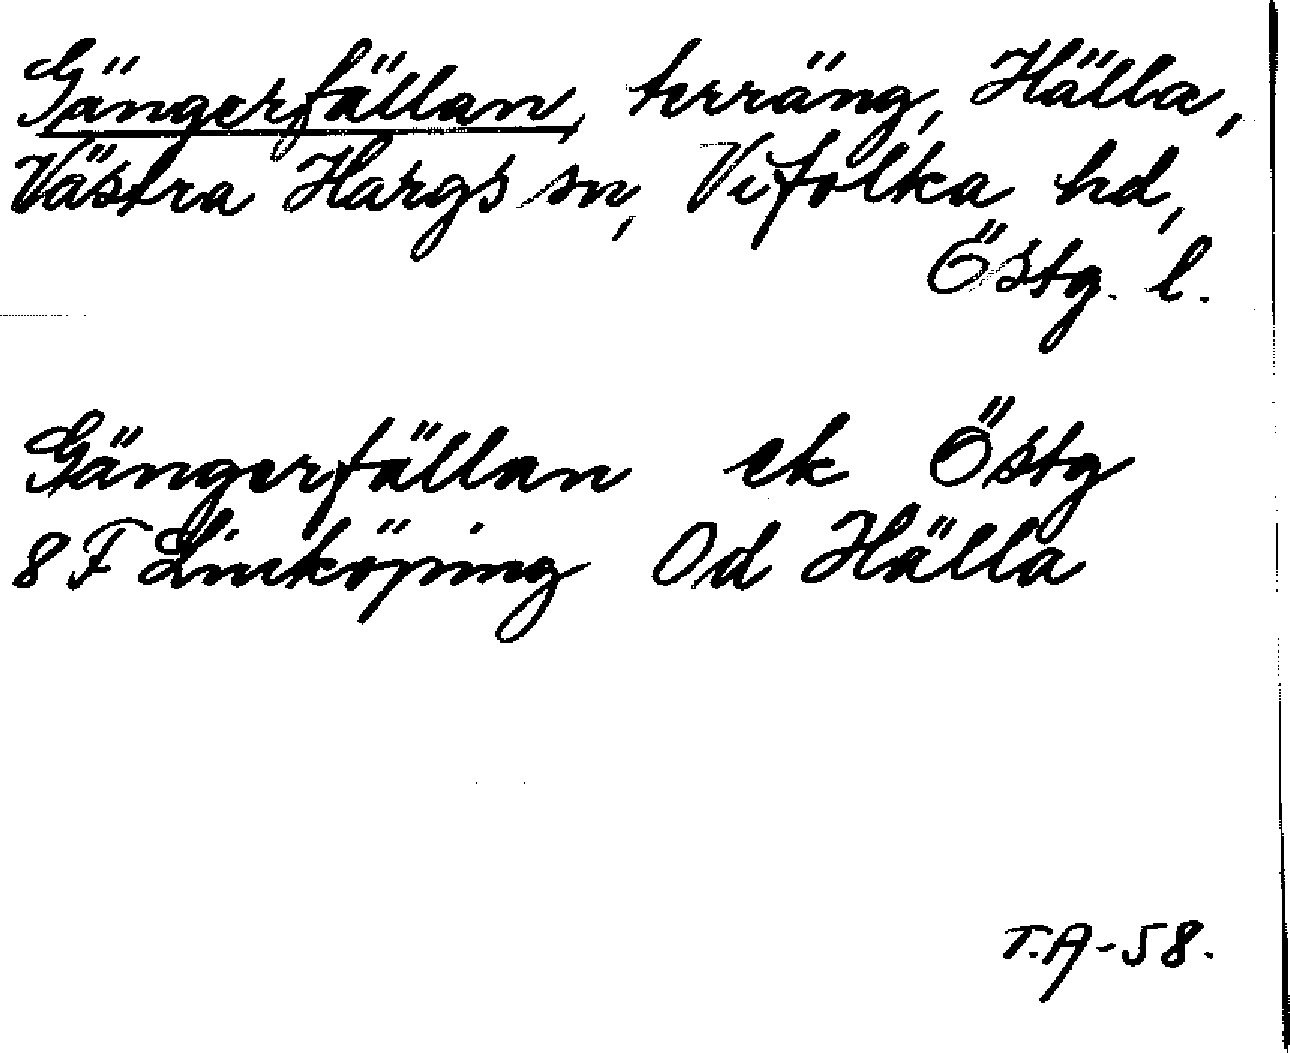 Gängerfällan, terräng, Hälla,
Västra Hargs sn, Vifolka hd,
Östg. l.
Gängerfällan ek Östg
8 F Linköping 0d Hälla
T.A-58.